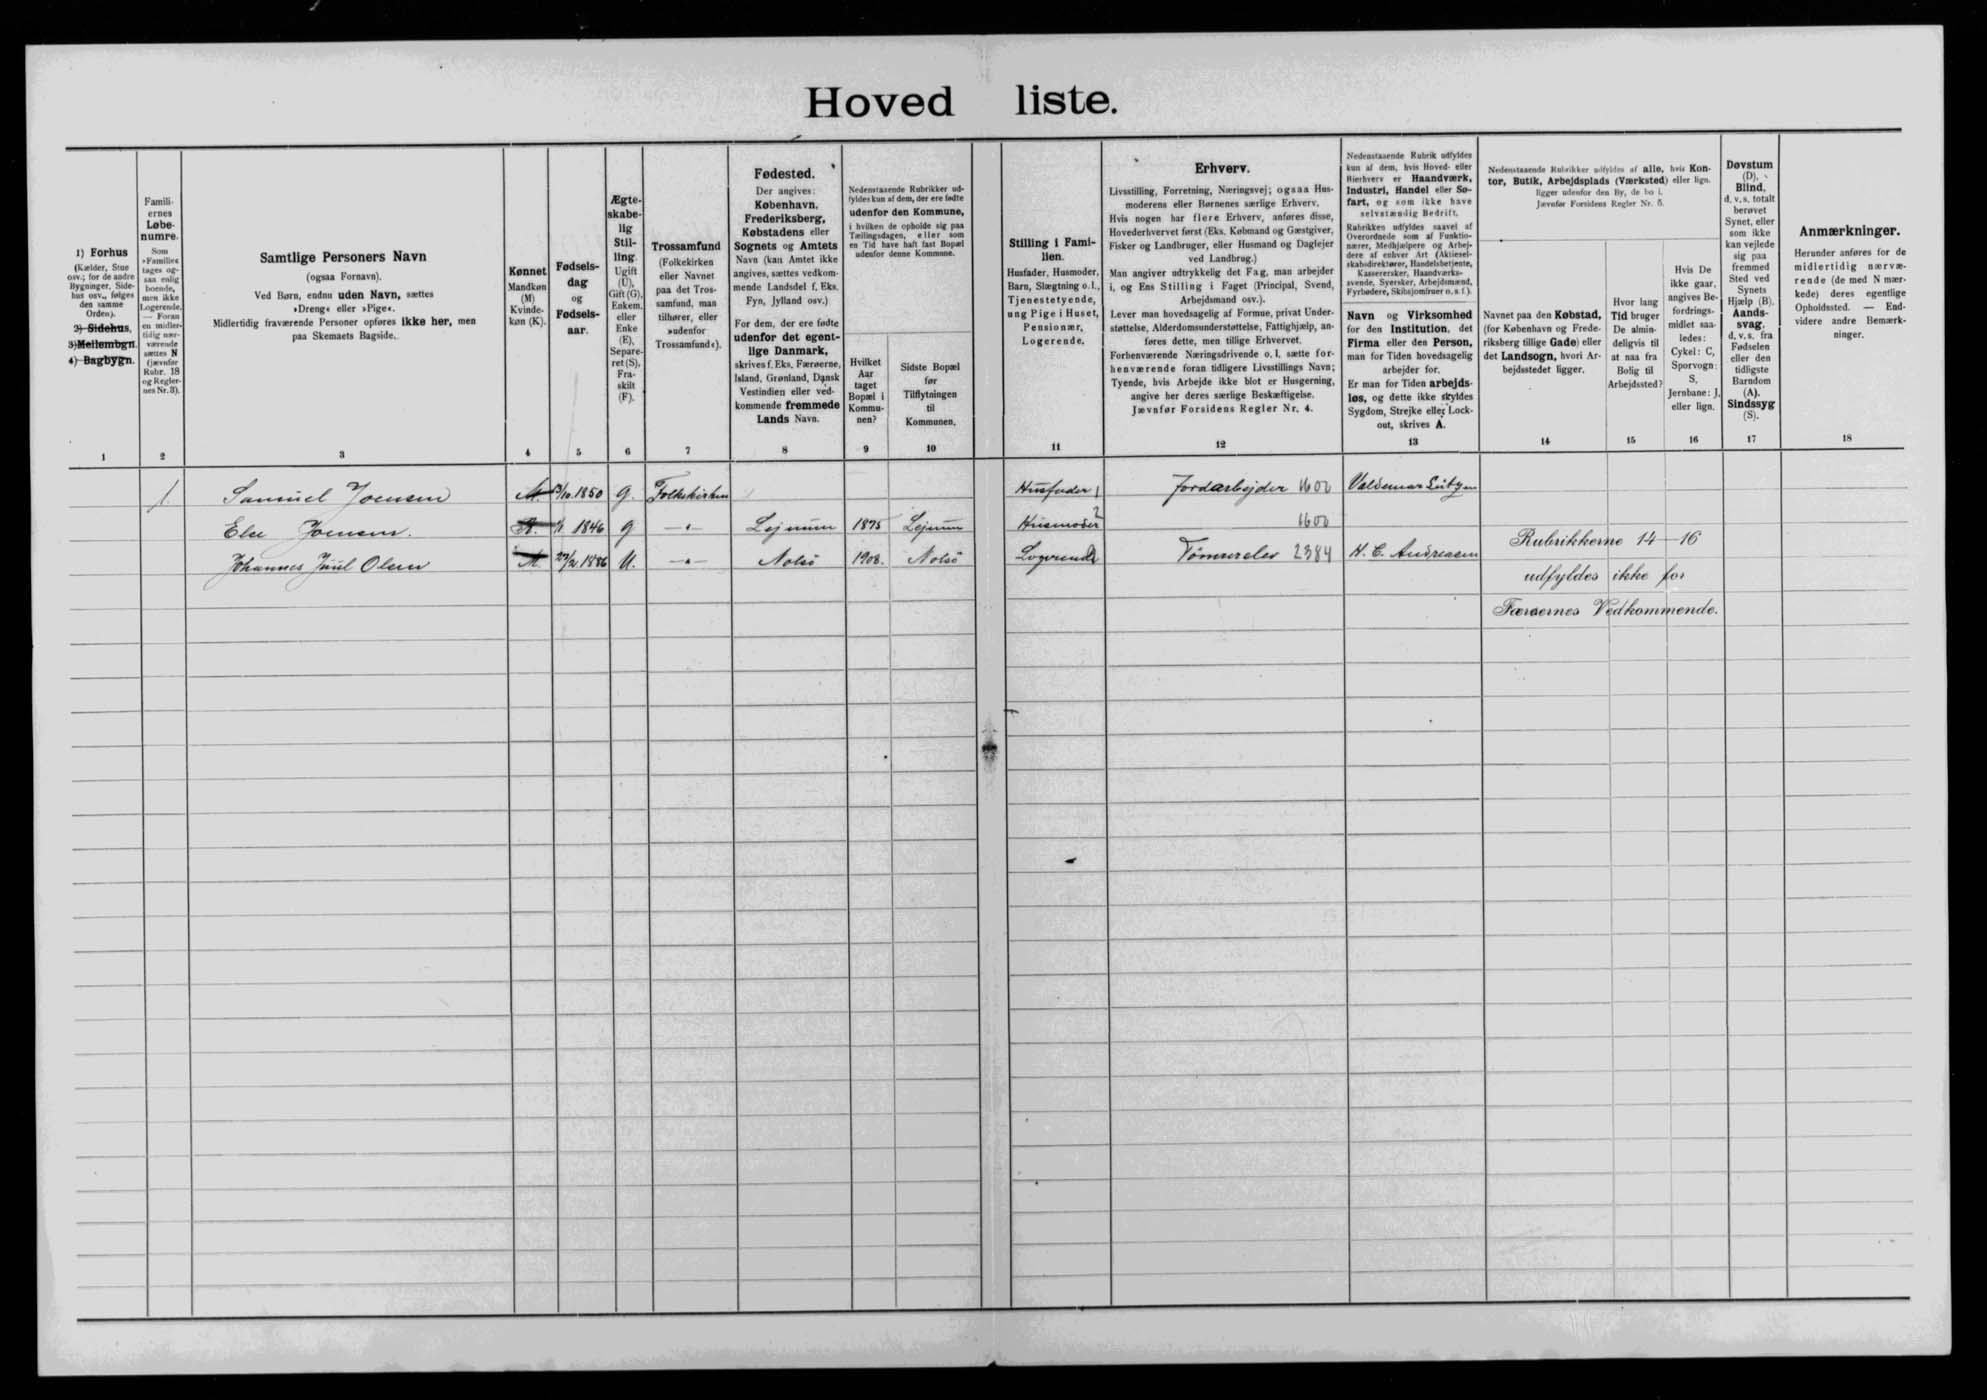 Hoved liste.
1) Forhus
(Kælder, Stue
osv.; for de andre
Bygninger, Side-
hus osv., følges
den samme
Orden).
2) Sidehus,
3) Mellembgn.
4) Bagbygn.
1
Famili-
ernes
Løbe-
numre.
Som
»Familie«
tages og-
saa enlig
boende,
men ikke
Logerende.
— Foran
en midler-
tidig nær-
værende
sættes N
(jævnfør
Rubr. 18
og Regler-
nes Nr. 3).
2
Samtlige Personers Navn
(ogsaa Fornavn).
Ved Børn, endnu uden Navn, sættes
»Dreng« eller »Pige«.
Midlertidig fraværende Personer opføres ikke her, men
paa Skemaets Bagside.
3
Kønnet
Mandkøn
(M)
Kvinde-
køn (K).
4
Fødsels-
dag
og
Fødsels-
aar.
5
Ægte-
skabe-
lig
Stil-
ling.
Ugift
(U),
Gift (G),
Enkem.
eller
Enke
(E),
Separe-
ret (S),
Fra-
skilt
(F).
6
Trossamfund
(Folkekirken
eller Navnet
paa det Tros-
samfund, man
tilhører, eller
»udenfor
Trossamfund«).
7
Fødested.
Der angives:
København,
Frederiksberg,
Købstadens eller
Sognets og Amtets
Navn (kan Amtet ikke
angives, sættes vedkom-
mende Landsdel f. Eks.
Fyn, Jylland osv.)
For dem, der ere fødte
udenfor det egent-
lige Danmark,
skrives f. Eks. Færøerne,
Island, Grønland, Dansk
Vestindien eller ved-
kommende fremmede
Lands Navn.
8
Nedenstaaende Rubrikker ud-
fyldes kun af dem, der ere fødte
udenfor den Kommune,
i hvilken de opholde sig paa
Tællingsdagen, eller som
en Tid have haft fast Bopæl
udenfor denne Kommune.
Hvilket
Aar
taget
Bopæl i
Kommu-
nen?
9
Sidste Bopæl
før
Tilflytningen
til
Kommunen.
10
Stilling i Fami-
lien.
Husfader, Husmoder,
Barn, Slægtning o. l.,
Tjenestetyende,
ung Pige i Huset,
Pensionær,
Logerende.
11
Erhverv.
Livsstilling, Forretning, Næringsvej; ogsaa Hus-
moderens eller Børnenes særlige Erhverv.
Hvis nogen har flere Erhverv, anføres disse,
Hovederhvervet først (Eks. Købmand og Gæstgiver,
Fisker og Landbruger, eller Husmand og Daglejer
ved Landbrug.)
Man angiver udtrykkelig det Fag, man arbejder
i, og Ens Stilling i Faget (Principal, Svend,
Arbejdsmand osv.).
Lever man hovedsagelig af Formue, privat Under-
støttelse, Alderdomsunderstøttelse, Fattighjælp, an-
føres dette, men tillige Erhvervet.
Forhenværende Næringsdrivende o. l. sætte for-
henværende foran tidligere Livsstillings Navn;
Tyende, hvis Arbejde ikke blot er Husgerning,
angive her deres særlige Beskæftigelse.
Jævnfør Forsidens Regler Nr. 4.
12
Nedenstaaende Rubrik udfyldes
kun af dem, hvis Hoved- eller
Bierhverv er Haandværk,
Industri, Handel eller Sø-
fart, og som ikke have
selvstændig Bedrift.
Rubrikken udfyldes saavel af
Overordnede som af Funktio-
nærer, Medhjælpere og Arbej-
dere af enhver Art (Aktiesel-
skabsdirektører, Handelsbetjente,
Kasserersker, Haandværks-
svende, Syersker, Arbejdsmænd,
Fyrbødere, Skibsjomfruer o. s. f.).
Navn og Virksomhed
for den Institution, det
Firma eller den Person,
man for Tiden hovedsagelig
arbejder for.
Er man for Tiden arbejds-
løs, og dette ikke skyldes
Sygdom, Strejke eller Lock-
out, skrives A.
13
Nedenstaaende Rubrikker udfyldes af alle, hvis Kon-
tor, Butik, Arbejdsplads (Værksted) eller lign.
ligger udenfor den By, de bo i.
Jævnfør Forsidens Regler Nr. 5.
Navnet paa den Købstad,
(for København og Frede-
riksberg tillige Gade) eller
det Landsogn, hvori Ar-
bejdsstedet ligger.
14
Hvor lang
Tid bruger
De almin-
deligvis til
at naa fra
Bolig til
Arbejdssted?
15
Hvis De
ikke gaar,
angives Be-
fordrings-
midlet saa-
ledes:
Cykel: C,
Sporvogn:
S,
Jernbane: J,
eller lign.
16
Døvstum
(D),
Blind,
d. v. s. totalt
berøvet
Synet, eller
som ikke
kan vejlede
sig paa
fremmed
Sted ved
Synets
Hjælp (B).
Aands-
svag,
d. v. s. fra
Fødselen
eller den
tidligste
Barndom
(A).
Sindssyg
(S).
17
Anmærkninger.
Herunder anføres for de
midlertidig nærvæ-
rende (de med N mær-
kede) deres egentlige
Opholdssted. — End-
videre andre Bemærk-
ninger.
18
1. Samuel Joensen M. /10 1850 G. Folkekirken Husfader 1 Jordarbejder 1600 Valdemar Lützen
Else Joensen. K. 1846 G —"— Lejnum 1875 Lejnum Husmoder 2 1600
Johannes Juul Olsen M. 27/2 1886 U. —"— Nolsø 1908. Nolsø Logerende Tømrerelev 2384 H. C. Andreasen
Rubrikkerne 14—16
udfyldes ikke for
Færøernes Vedkommende.